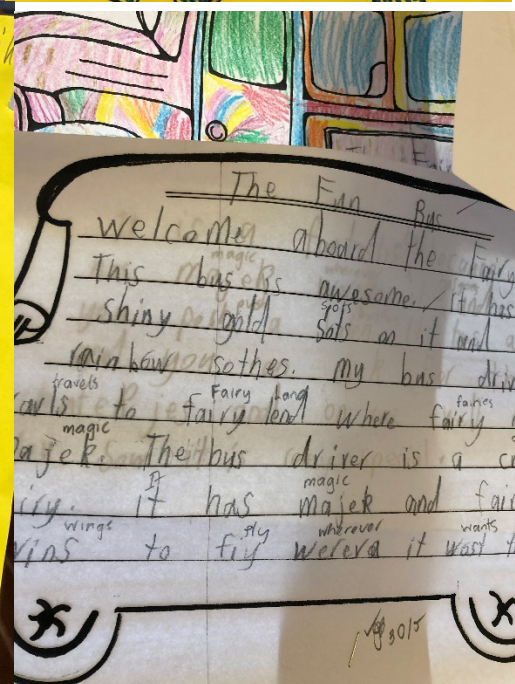 The Fun Bus
Welcome aboard the Fairy
magic
This bus is awesome. It has
spots
Shiny gold sots on it and
rainbow sothes. my bus driv
travels Fairy land fairies
avls to fairy lend where fairy
magic
ajek. The bus driver is a cr
It magic
iry. it has majek and fair
wings fly wherever wants
wins to fiy wereva it wost t
30/5